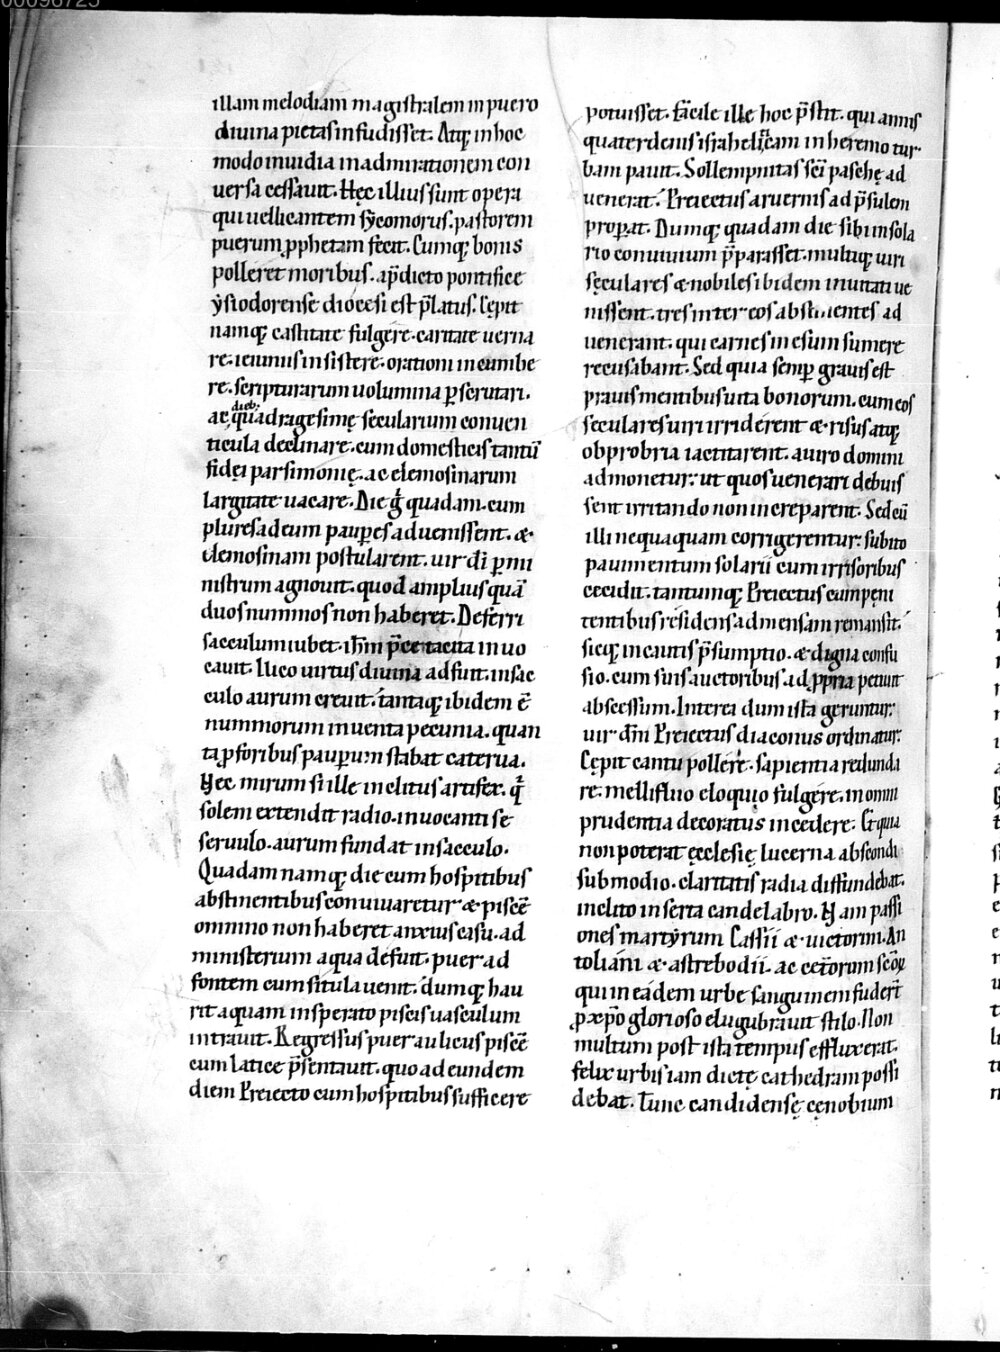 00096725
illam melodiam magistralem in puero
diuina pietas infudisset. Atq; in hoc
modo inuidia in admirationem con
uersa cessauit. Hęc illius sunt opera
qui uellicantem sycomorus. pastorem
puerum. ꝓphetam fecit. Cumq; bonis
polleret moribus. a p̄dicto pontifice
ẏsiodorense diocesi est p̄latus. Cępit
namq; castitate fulgere. caritate uerna
re. ieiuniis insistere. orationi incumbe
re. scripturarum uolumina ꝑscrutari.
ac dieb; quadragesimę secularium conuen
ticula declinare. cum domesticis tantū
fidei parsimonię. ac elemosinarum
largitate uacare. Die g̊ quadam. cum
plures ad eum pauꝑes aduenissent. &
elemosinam postularent. uir dī ꝑ mi
nistrum agnouit. quod amplius quā
duos nummos non haberet. Deferri
sacculum iubet. ihm̄ p̄ce tacita inuo
cauit. Ilico uirtus diuina adfuit. in sac
culo aurum creuit. tantaq; ibidem ē
nummorum inuenta pecunia. quan
ta ꝓ foribus pauꝑum stabat caterua.
Nec mirum si ille inclitus artifex. qͥ
solem extendit radio. inuocanti se
seruulo. aurum fundat in sacculo.
Quadam namq; die cum hospitibus
abstinentibus conuiuaretur & piscē
omnino non haberet anxius casu. ad
ministerium aqua defuit. puer ad
fontem cum situla uenit. dumq; hau
rit aquam insperato piscis uasculum
intrauit. Regressus puer aulicus piscē
cum latice p̄sentauit. quo ad eundem
diem Preiecto cum hospitibus sufficere
potuisset. facile ille hoc p̄stit. qui annis
quater denis israheliticam in heremo tur
bam pauit. Sollempnitas scī paschę ad
uenerat. Preiectus aruernis ad p̄sulem
proꝑat. Dumq; quadam die sibi in sola
rio conuiuium p̄parasset. multiq; uiri
sęculares & nobiles ibidem inuitati ue
nissent. tres inter eos abstinentes ad
uenerant. qui carnes in esum sumere
recusabant. Sed quia semꝑ grauis est
prauis mentibus uita bonorum. cum eos
seculares uiri irriderent & risus atq;
obprobria iactitarent. a uiro domini
admonetur. ut quos uenerari debuis
sent irritando non increparent. Sed cū
illi nequaquam corrigerentur. subito
pauimentum solarii cum irrisoribus
cecidit. tantumq; Preiectus cum pęni
tentibus residens ad mensam remansit.
sicq; incautis p̄sumptio. & digna confu
sio. cum suis auctoribus. ad ꝓpria petiuit
abscessum. Interea dum ista geruntur.
uir dn̄i Preiectus diaconus ordinatur.
Cępit cantu pollere. sapientia redunda
re. mellifluo eloquio fulgere. in omni
prudentia decoratus incedere. Et quia
non poterat ęcclesię lucerna abscondi
sub modio. claritatis radia diffundebat.
inclito inserta candelabro. Nam passi
ones martẏrum Cassii & uictorini. An
toliani & astrebodii. ac cet̄orum scōꝝ
qui in eadem urbe sanguinem fuder̄t
ꝓ xp̄o glorioso elugubrauit stilo. Non
multum post ista tempus effluxerat.
felix urbis iam dictę cathedram possi
debat. Tunc candidensę cęnobium